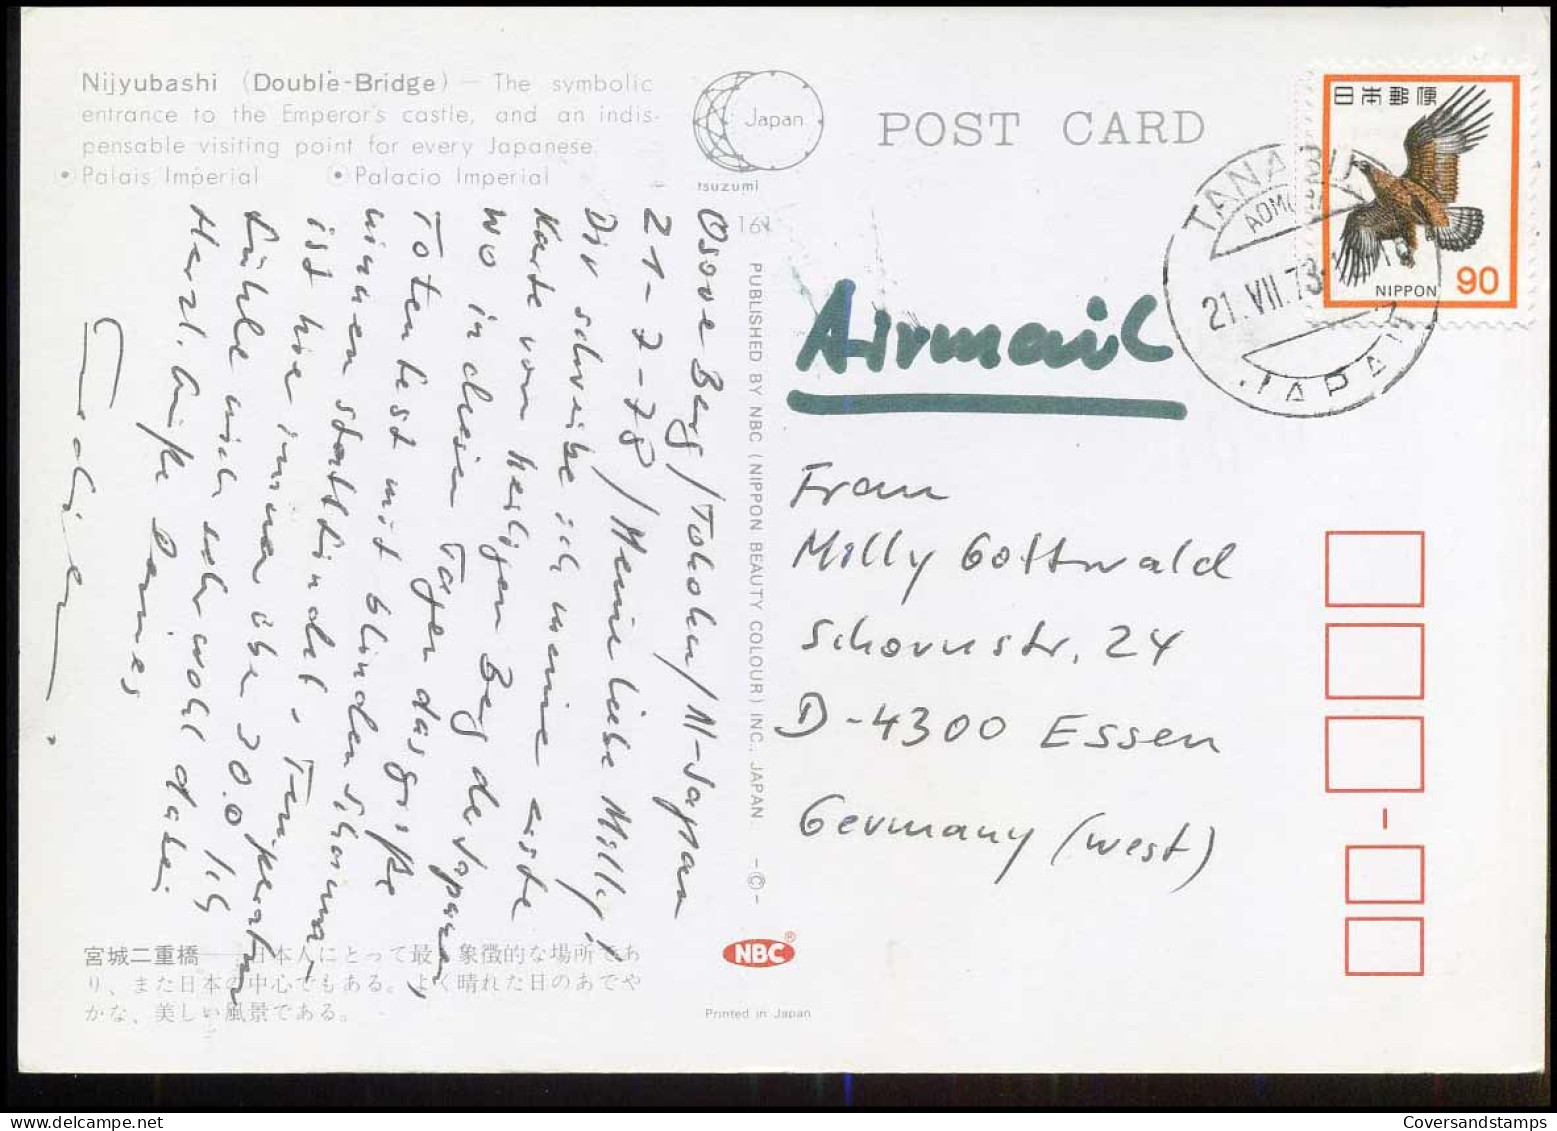 Nijyubashi (Double-Bridge) — The symbolic
entrance to the Emperor's castle, and an indis-
pensable visiting point for every Japanese.
• Palais Impérial ⦿ Palacio Imperial
Japan
tsuzumi
161
POST CARD
日本郵便
NIPPON 90
TANABU
AOMORI
21.VII.78
JAPAN
Airmail
Osore Berg/Tohoku/N-Japan
21-7-78/Meine liebe Milly!
Dir schreibe ich meine erste
Karte vom heiligen Berg der Japaner,
wo in diesen Tagen das große
Totenfest mit blinden Schama-
ninnen stattfindet. Temperatur
ist hier immer über 30.0 Ich
fühle mich sehr wohl dabei
Herzl. Grüße Deines
PUBLISHED BY NBC (NIPPON BEAUTY COLOUR) INC., JAPAN. -©-
Frau
Milly Gottwald
Schornstr. 24
D-4300 Essen
Germany (West)
NBC®
Printed in Japan
宮城二重橋——日本人にとって最も象徴的な場所であ
り、また日本の中心でもある。よく晴れた日のあでや
かな、美しい風景である。
Coversandstamps